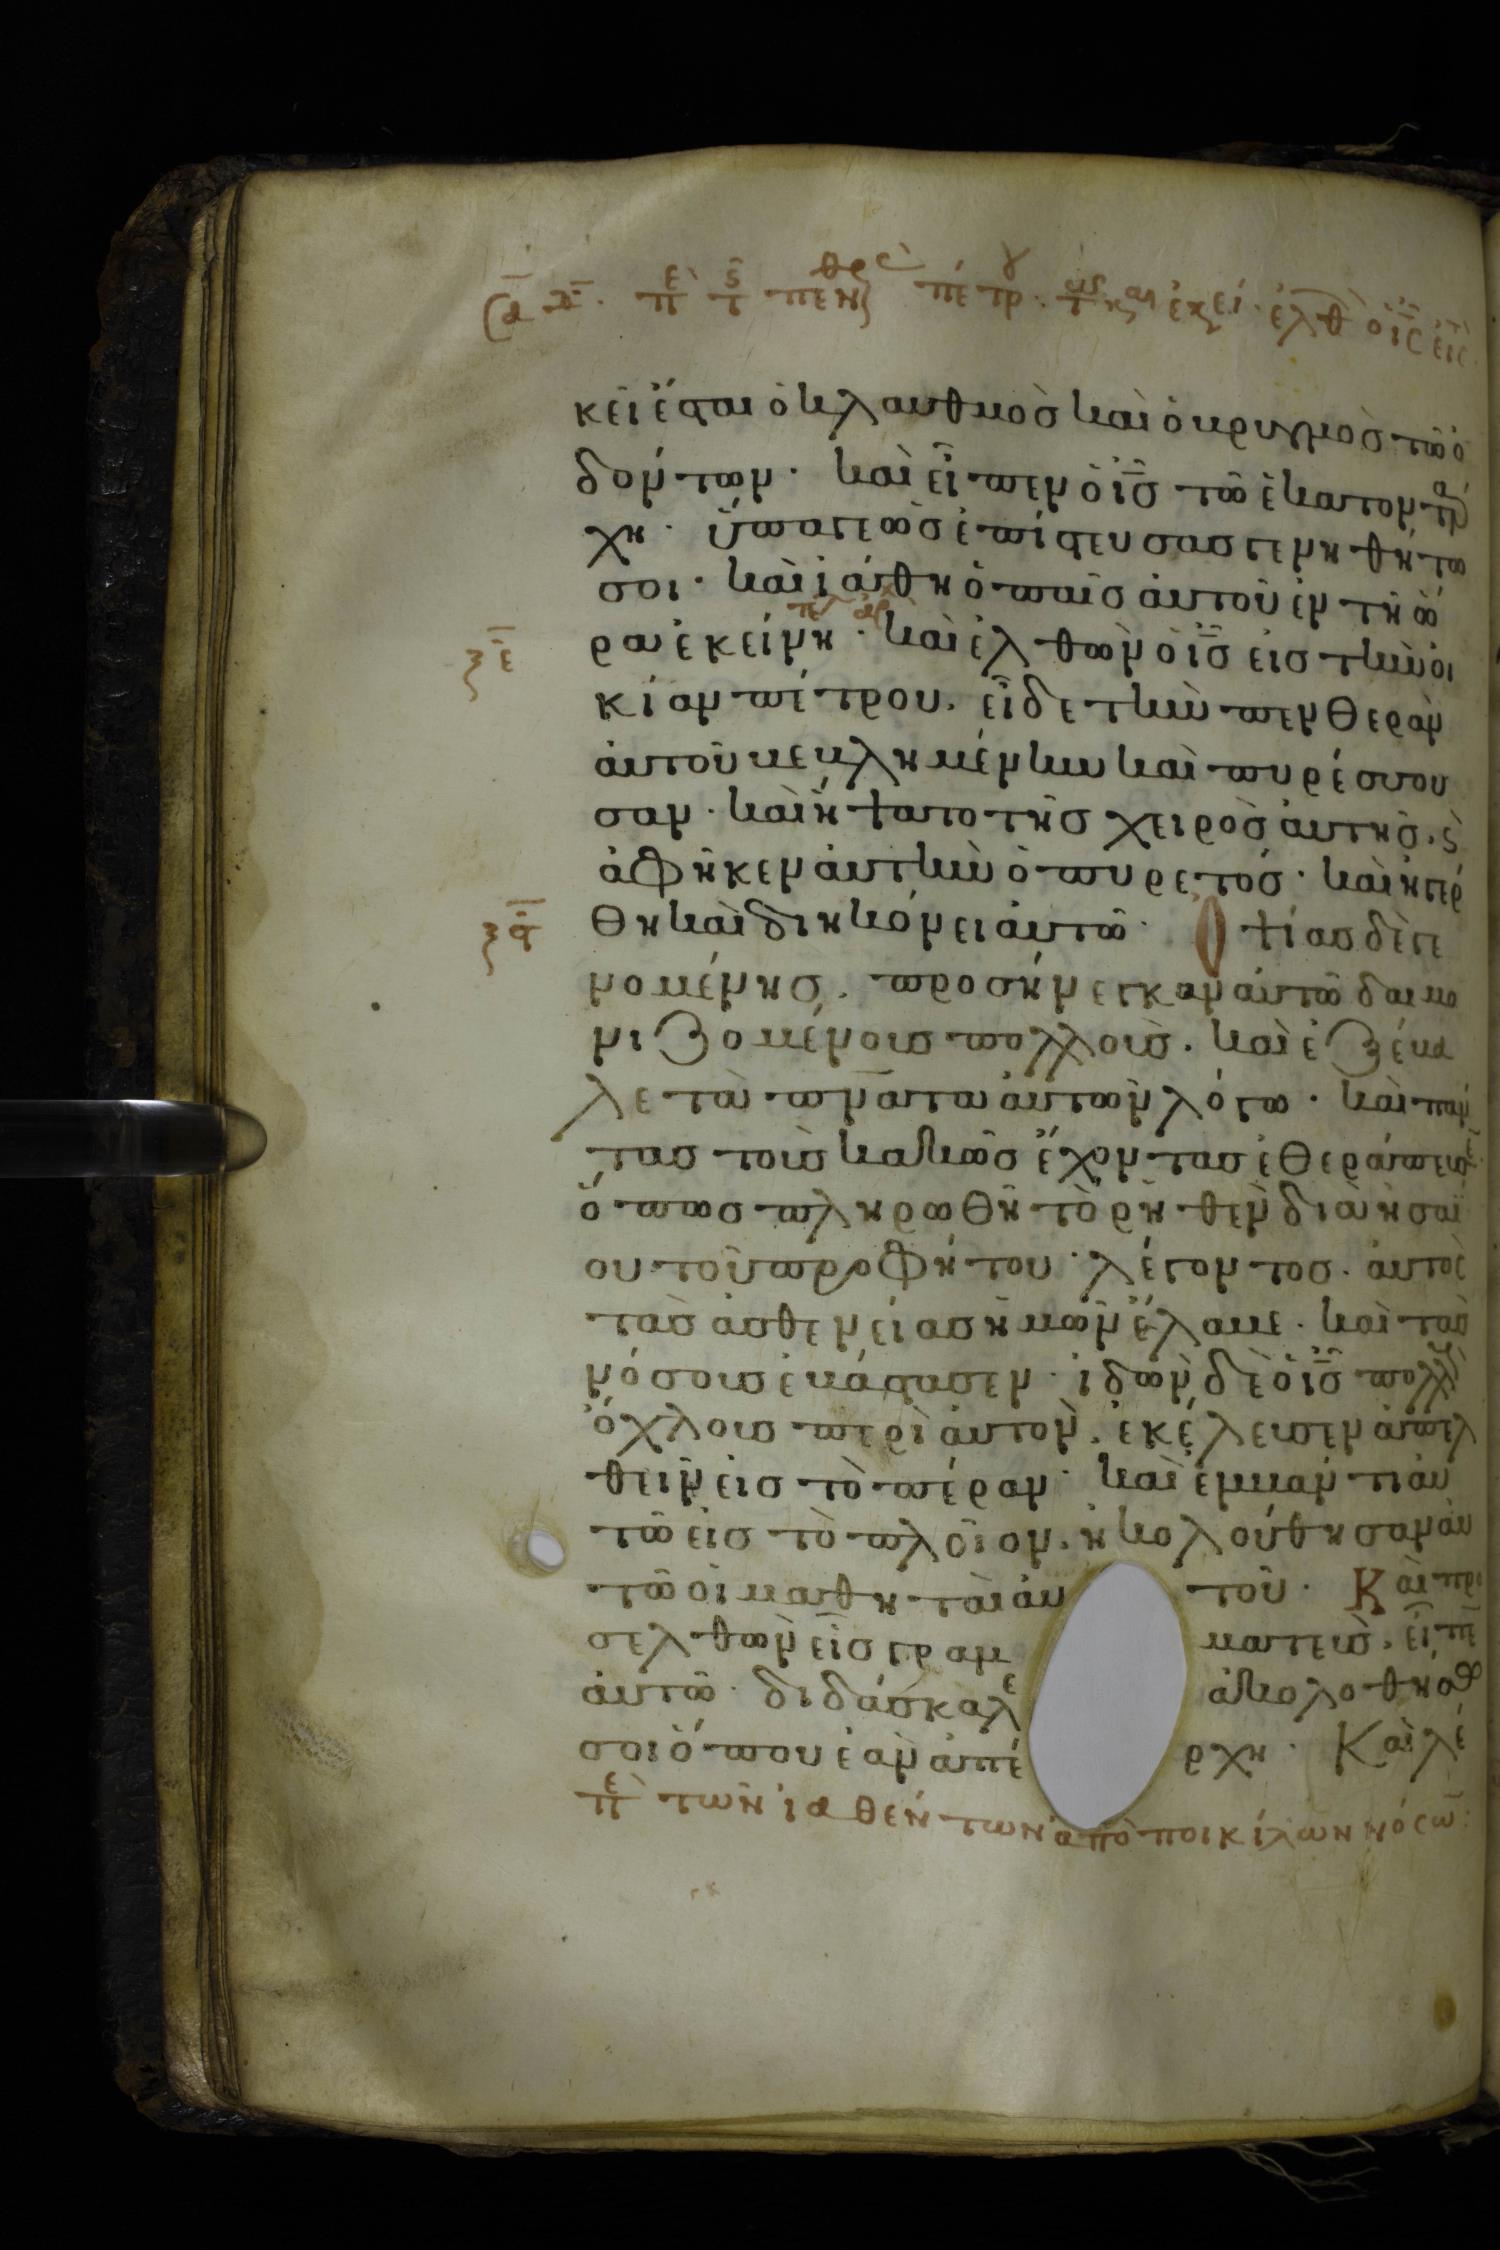 κεῖ ἔσται ὁ κλαυθμὸσ καὶ ὁ βρυγμὸσ τῶ ὀ
δόντων· καὶ εἶπεν ὁ ι̅σ̅ τῶ ἑκατοντάρ
χη· ὕπαγε ὡσ ἐπίστευσασ γενηθήτω
σοι· καὶ ἰάθη ὁ παῖσ αὐτοῦ ἐν τῆ ὥ
ξ̅ε̅ ρα ἐκείνη· καὶ ἐλθὼν ὁ ι̅σ̅ εἰσ τὴν οἰ
κίαν πέτρου, εἶδε τὴν πενθερὰν
αὐτοῦ βεβλημένην καὶ πυρέσσου
σαν· καὶ ἥψατο τῆσ χειρὸσ αὐτῆσ· ϛ
ἀφῆκεν αὐτὴν ὁ πυρετόσ· καὶ ἠγέρ
θη καὶ διηκόνει αὐτῶ· Ὀψίασ δὲ γε
νομένησ, προσήνεγκαν αὐτῶ δαιμο
νιζομένουσ πολλούσ· καὶ ἐξέβα
λε τὰ π̅ν̅ατα αὐτῶν λόγω· καὶ πάν
τασ τοὺσ κακῶσ ἔχοντασ ἐθεράπευσεν
ὅπωσ πληρωθῆ τὸ ρηθὲν διὰ ἡσαΐ
ου τοῦ προφήτου· λέγοντοσ· αὐτὸσ
τὰσ ἀσθενείασ ἡμῶν ἔλαβε· καὶ τὰσ
νόσουσ ἐβάστασεν· ἰδὼν δὲ ὁ ι̅σ̅ πολλοὺσ
ὄχλουσ περὶ αὐτὸν, ἐκέλευσεν ἀπελ
θεῖν εἰσ τὸ πέραν· καὶ ἐμβάντι αὐ
τῶ εἰσ τὸ πλοῖον, ἠκολούθησαν αὐ
τῶ οἱ μαθηταὶ αὐτοῦ· Καὶ προ
σελθὼν εἶσ γραμματεὺσ, εἶπεν
αὐτῶ· διδάσκαλε ἀκολουθήσω
σοι ὅπου ἐὰν ἀπέρχη· Καὶ λέ
τῶν ἰαθέντων ἀπὸ ποικίλων νόσω